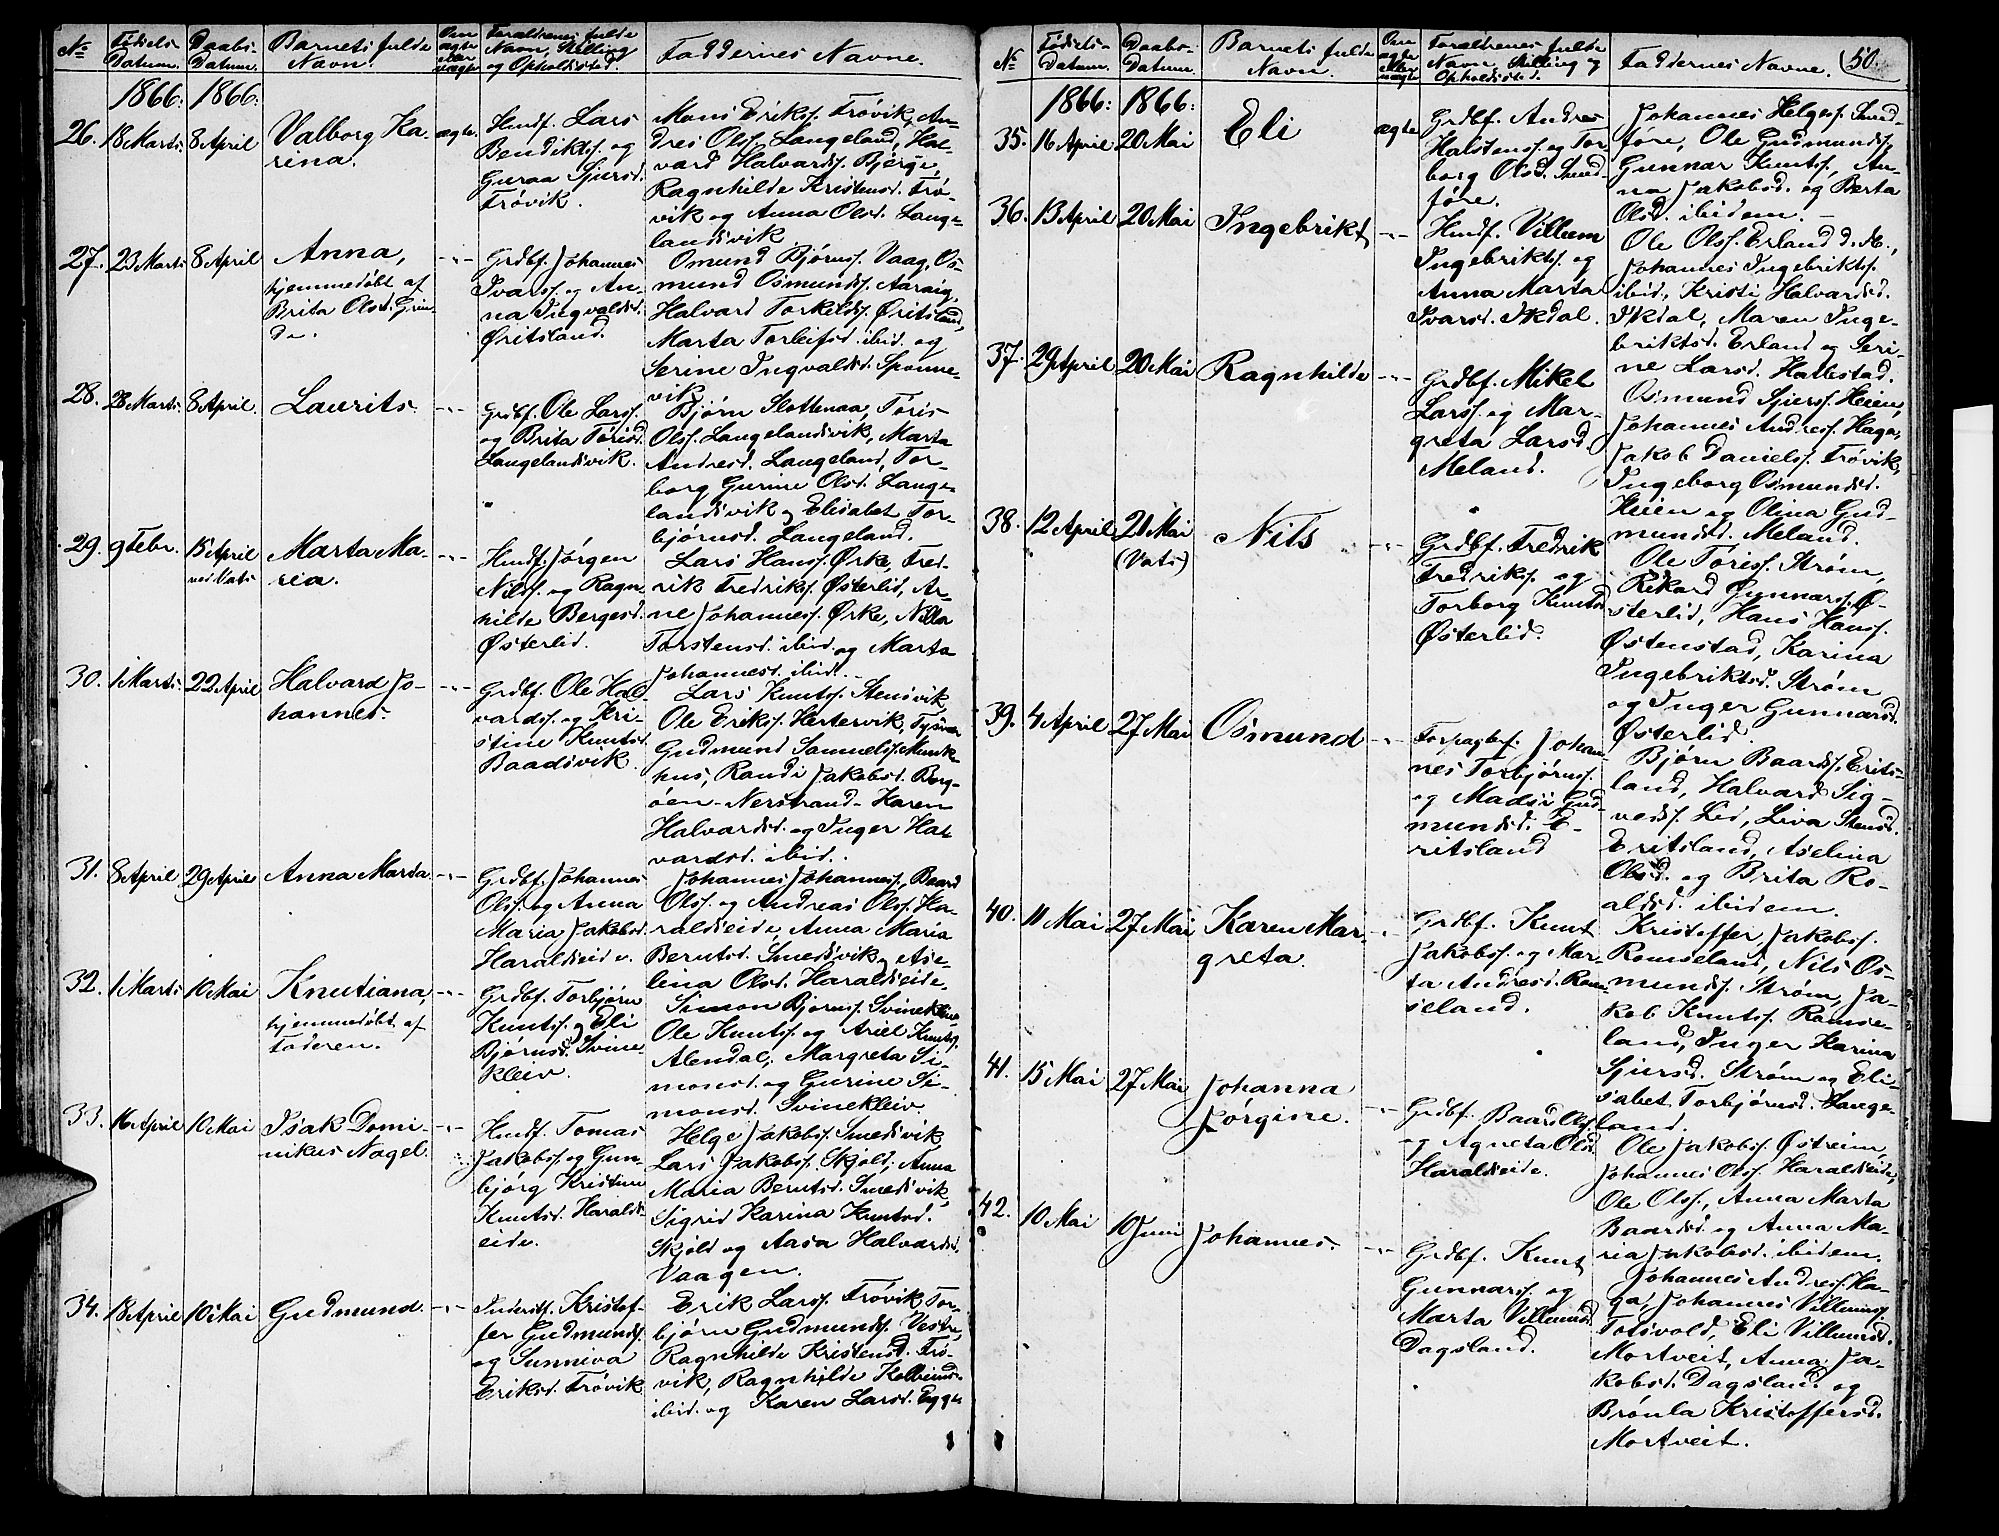 No
Fødsels-
Datum.
Daabs-
Datum.
Barnets fulde
Navn.
Om
ægte
eller
uægte
Forældrenes fulde
Navn, Stilling
og Opholdssted.
Faddernes Navne.
1866: 1866:
26. 18 Marts. 8 April Valborg Ka-
rina.
ægte.
Huusf. Lars
Bendiktss. og
Guraa Sjursd.
Trøvik.
Mons Erikss. Trøvik, An-
dres Olss. Langeland, Hal-
vard Halvardss. Bjerge,
Ragnhilde Kristensd. Trø-
vik og Anna Olsd. Lange-
landsvik
27. 23 Marts 8 April Anna,
hjemmedøbt af
Brita Olsd. Grin-
de.
-"-
Grdbf. Johannes
Ivarss. og An-
na Ingvaldsd.
Øritsland.
Osmund Bjørnss. Vaag, Os-
mund Osmundss. Aaraig,
Halvard Torkelds. Øritsland,
Marta Torleifsd. ibid. og
Serine Ingvaldsd. Sponne-
vik
28. 28 Marts. 8 April. Laurits.
-"-
Grdbf. Ole Larss.
og Brita Torisd.
Langelandsvik.
Bjørn Slottenaa, Toris
Olss. Langelandsvik, Marta
Andresd. Langeland, Tor-
borg Gurine Olsd. Lange-
landsvik og Elisabet Tor-
bjørnsd. Langeland.
29. 9 Febr. 15 April
ved Vats
Marta Ma-
ria.
-"-
Huusf. Jørgen
Nilss. og Ragn-
hilde Bergesd.
Østerlid.
Lars Hanss. Ørke, Fred-
rik Fredrikss. Østerlid, Ar-
ne Johanness. Ørke, Nilla
Torstensd. ibid. og Marta
Johannesd. ibid.
30. 1 Marts. 22 April Halvard Jo-
hannes.
-"-
Grdbf. Ole Hal-
vardss. og Kri-
stine Knutsd.
Baadsvik.
Lars Knutss. Stensvik
Ole Erikss. Hertervik, Tysvær
Gudmund Samuelss. Munk-
hus, Randi Jakobsd. Borg-
øen - Nerstrand - Karen
Halvardsd. og Inger Hal-
vardsd. ibid.
31. 8 April 29 April Anna Marta
-"-
Grdbf. Johannes
Olss. og Anna
Maria Jakobsd.
Haraldseide.
Johannes Johanness., Baard
Olss. og Andreas Olss. Ha-
raldseide, Anna Maria
Berntsd. Smedsvik og Ase-
lina Olsd. Haraldseide.
32. 1 Marts 10 Mai Knutiana,
hjemmedøbt af
Faderen.
-"-
Grdbf. Torbjørn
Knutss. og Eli
Bjørnsd. Svine-
kleiv.
Simon Bjørnss. Svinekleiv
Ole Knutss. og Ariel Knutss.
Alendal, Margreta Si-
monsd. og Gurine Si-
monsd. Svinekleiv.
33. 16 April 10 Mai Isak Domi-
nikus Nagel.
-"-
Huusf. Tomas
Jakobss. og Gun-
bjørg Kristine
Knutsd. Haralds-
eide.
Helge Jakobss. Smedsvik,
Lars Jakobss. Skjold, Anna
Maria Berntsd. Smedsvik,
Sigrid Karina Knutsd.
Skjold og Aasa Halvardsd.
Vaagen.
34. 18 April 10 Mai Gudmund.
-"-
Inderstf. Kristof-
fer Gudmundss.
og Sunniva
Eriksd. Trøvik
Erik Larss. Trøvik, Tor-
bjørn Gudmundss. Vestre,
Ragnhilde Kristensd. Trø-
vik, Ragnhilde Kolbeinsd.
ibid. og Karen Larsd. Egge
No
Fødsels-
Datum.
Daabs-
Datum.
Barnets fulde
Navn.
Om
ægte
eller
uægte
Forældrenes fulde
Navn, Stilling og
Opholdssted.
Faddernes Navne.
50.
1866: 1866:
35. 16 April 20 Mai Eli
ægte
Grdbf. Andres
Halstenss. og Tor-
borg Olsd. Sund-
føre.
Johannes Helgess. Sund-
føre, Ole Gudmundss.,
Gunnar Knutss., An-
na Jakobsd. og Berta
Olsd. ibidem.
36. 13 April 20 Mai Ingebrikt
-"-
Huusf. Villum
Ingebriktss. og
Anna Marta
Ivarsd. Ikdal.
Ole Olss. Erland d. Æ.,
Johannes Ingebriktss.
ibid., Kristi Halvardsd.
Ikdal, Maren Inge-
briktsd. Erland og Seri-
ne Larsd. Hallestad.
37. 29 April 20 Mai Ragnhilde
-"-
Grdbf. Mikel
Larss. og Mar-
greta Larsd.
Meland.
Osmund Sjurss. Heien,
Johannes Andress. Haga,
Jakob Daniels. Trøvik,
Ingeborg Osmundsd.
Heien og Olina Gud-
mundsd. Meland.
38. 12 April 21 Mai
(Vats)
Nils
-"-
Grdbf. Fredrik
Fredrikss. og
Torborg Knutsd.
Østerlid.
Ole Toriss. Strøm,
Rikard Gunnarss. Ø-
sterlid, Hans Hanss.
Østenstad, Karina
Ingebriktsd. Strøm
og Inger Gunnarsd.
Østerlid.
39. 4 April 27 Mai Osmund
-"-
Forpagtef. Johan-
nes Torbjørnss.
og Madsi Gud-
mundsd. E-
ritsland
Bjørn Baardss. Erits-
land, Halvard Sig-
vedss. Lid, Liva Stensd.
Eritsland, Aselina
Olsd. og Brita Ro-
aldsd. ibidem.
40. 11 Mai 27 Mai Karen Mar-
greta.
-"-
Grdbf. Knut
Jakobss. og Mar-
ta Andresd. Ram-
seland.
Kristoffer Jakobss.
Romseland, Nils Os-
munds. Strøm, Ja-
kob Knutss. Ramse-
land, Inger Karina
Sjursd. Strøm og Eli-
sabet Torbjørnsd. Lange-
land.
41. 15 Mai 27 Mai Johanna
Jørgine.
-"-
Grdbf. Baard Olss.
og Agneta Olsd.
Haraldseide.
Ole Jakobss. Østreim,
Johannes Olss. Haraldseide,
Ole Olss., Anna Marta
Baardsd. og Anna Ma-
ria Jakobsd. ibidem.
42. 10 Mai 10 Juni Johannes.
-"-
Grdbf. Knut
Gunnarss. og
Marta Villumsd.
Dagsland.
Johannes Andress. Ha-
ga, Johannes Villumss.
Totsvold, Eli Villumsd.
Mortveit, Anna Ja-
kobsd. Dagsland og
Brønla Kristoffersd.
Mortveit.